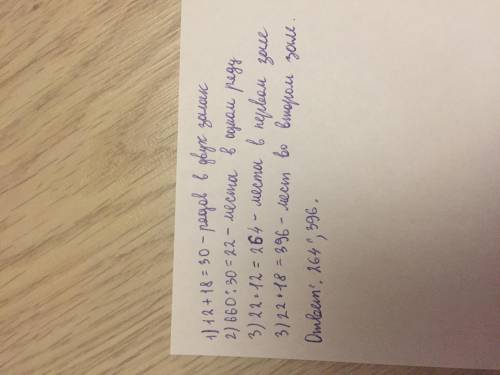 1) 12 + 18 = 30 - рядов в двух залах
2) 660 : 30 = 22 - места в одном ряду
3) 22 • 12 = 264 - места в первом зале
3) 22 • 18 = 396 - мест во втором зале.
Ответ: 264; 396.